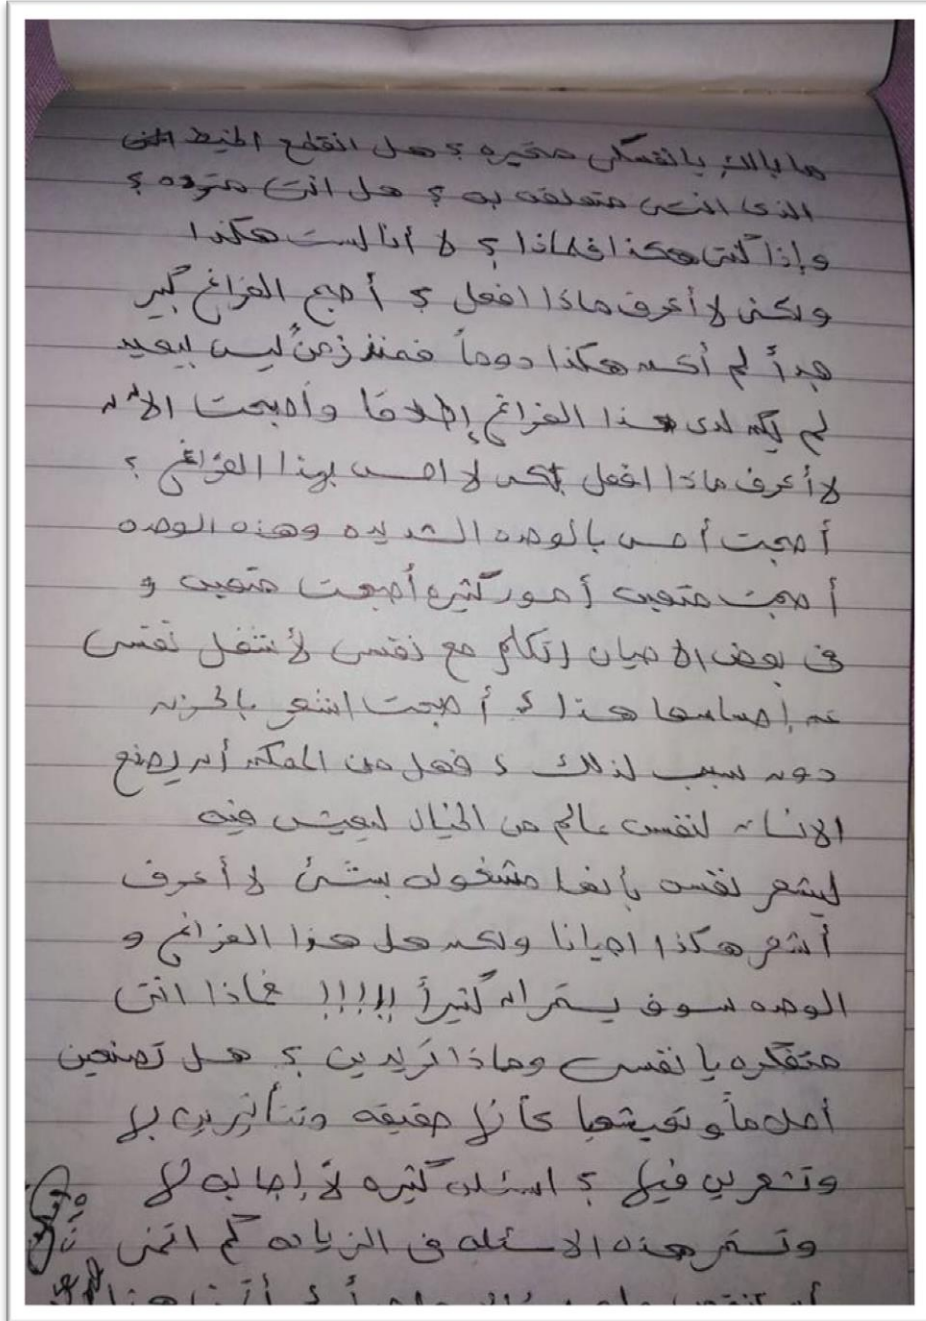 ما بالك يا نفسى متحيره ؟ هل انقطع الخيط
الذى انتى متعلقه به ؟ هل انتى متردده ؟
وإذا كنتى هكذا فلماذا ؟ لا أنا لست هكذا
ولكنى لا أعرف ماذا افعل ؟ أصبح الفراغ كبير
جداً لم أكن هكذا دوماً فمنذ زمنٌ ليس ببعيد
لم يكن لدى هذا الفراغ إطلاقا وأصبحت الان
لا أعرف ماذا افعل لكى لا احس بهذا الفراغ ؟
أصبحت أحس بالوحده الشديده وهذه الوحده
أصبحت أمور كثيره أصبحت و
فى بعض الاحيان اتكلم مع نفسى لأشغل نفسى
عن إحساسها هذا أصبحت اشعر بالحزن
دون سبب لذلك فهل من الممكن أن يصنع
الانسان لنفسه عالم من الخيال ليعيش فيه
ليشعر نفسه بأنها مشغوله بشئ لا أعرف
أشعر هكذا احيانا ولكن هل هذا الفراغ و
الوحده سوف يستمران كثيراً !!!!! فماذا انتى
متفكره يا نفسى وماذا تريدين ؟ هل تصنعين
أحلاماً وتعيشيها كأنها حقيقه وتتأثرين بها
وتشعرين فيها ؟ اسئله كثيره لا إجابه لها
وتستمر هذه الاسئله فى الزياده كم اتمنى